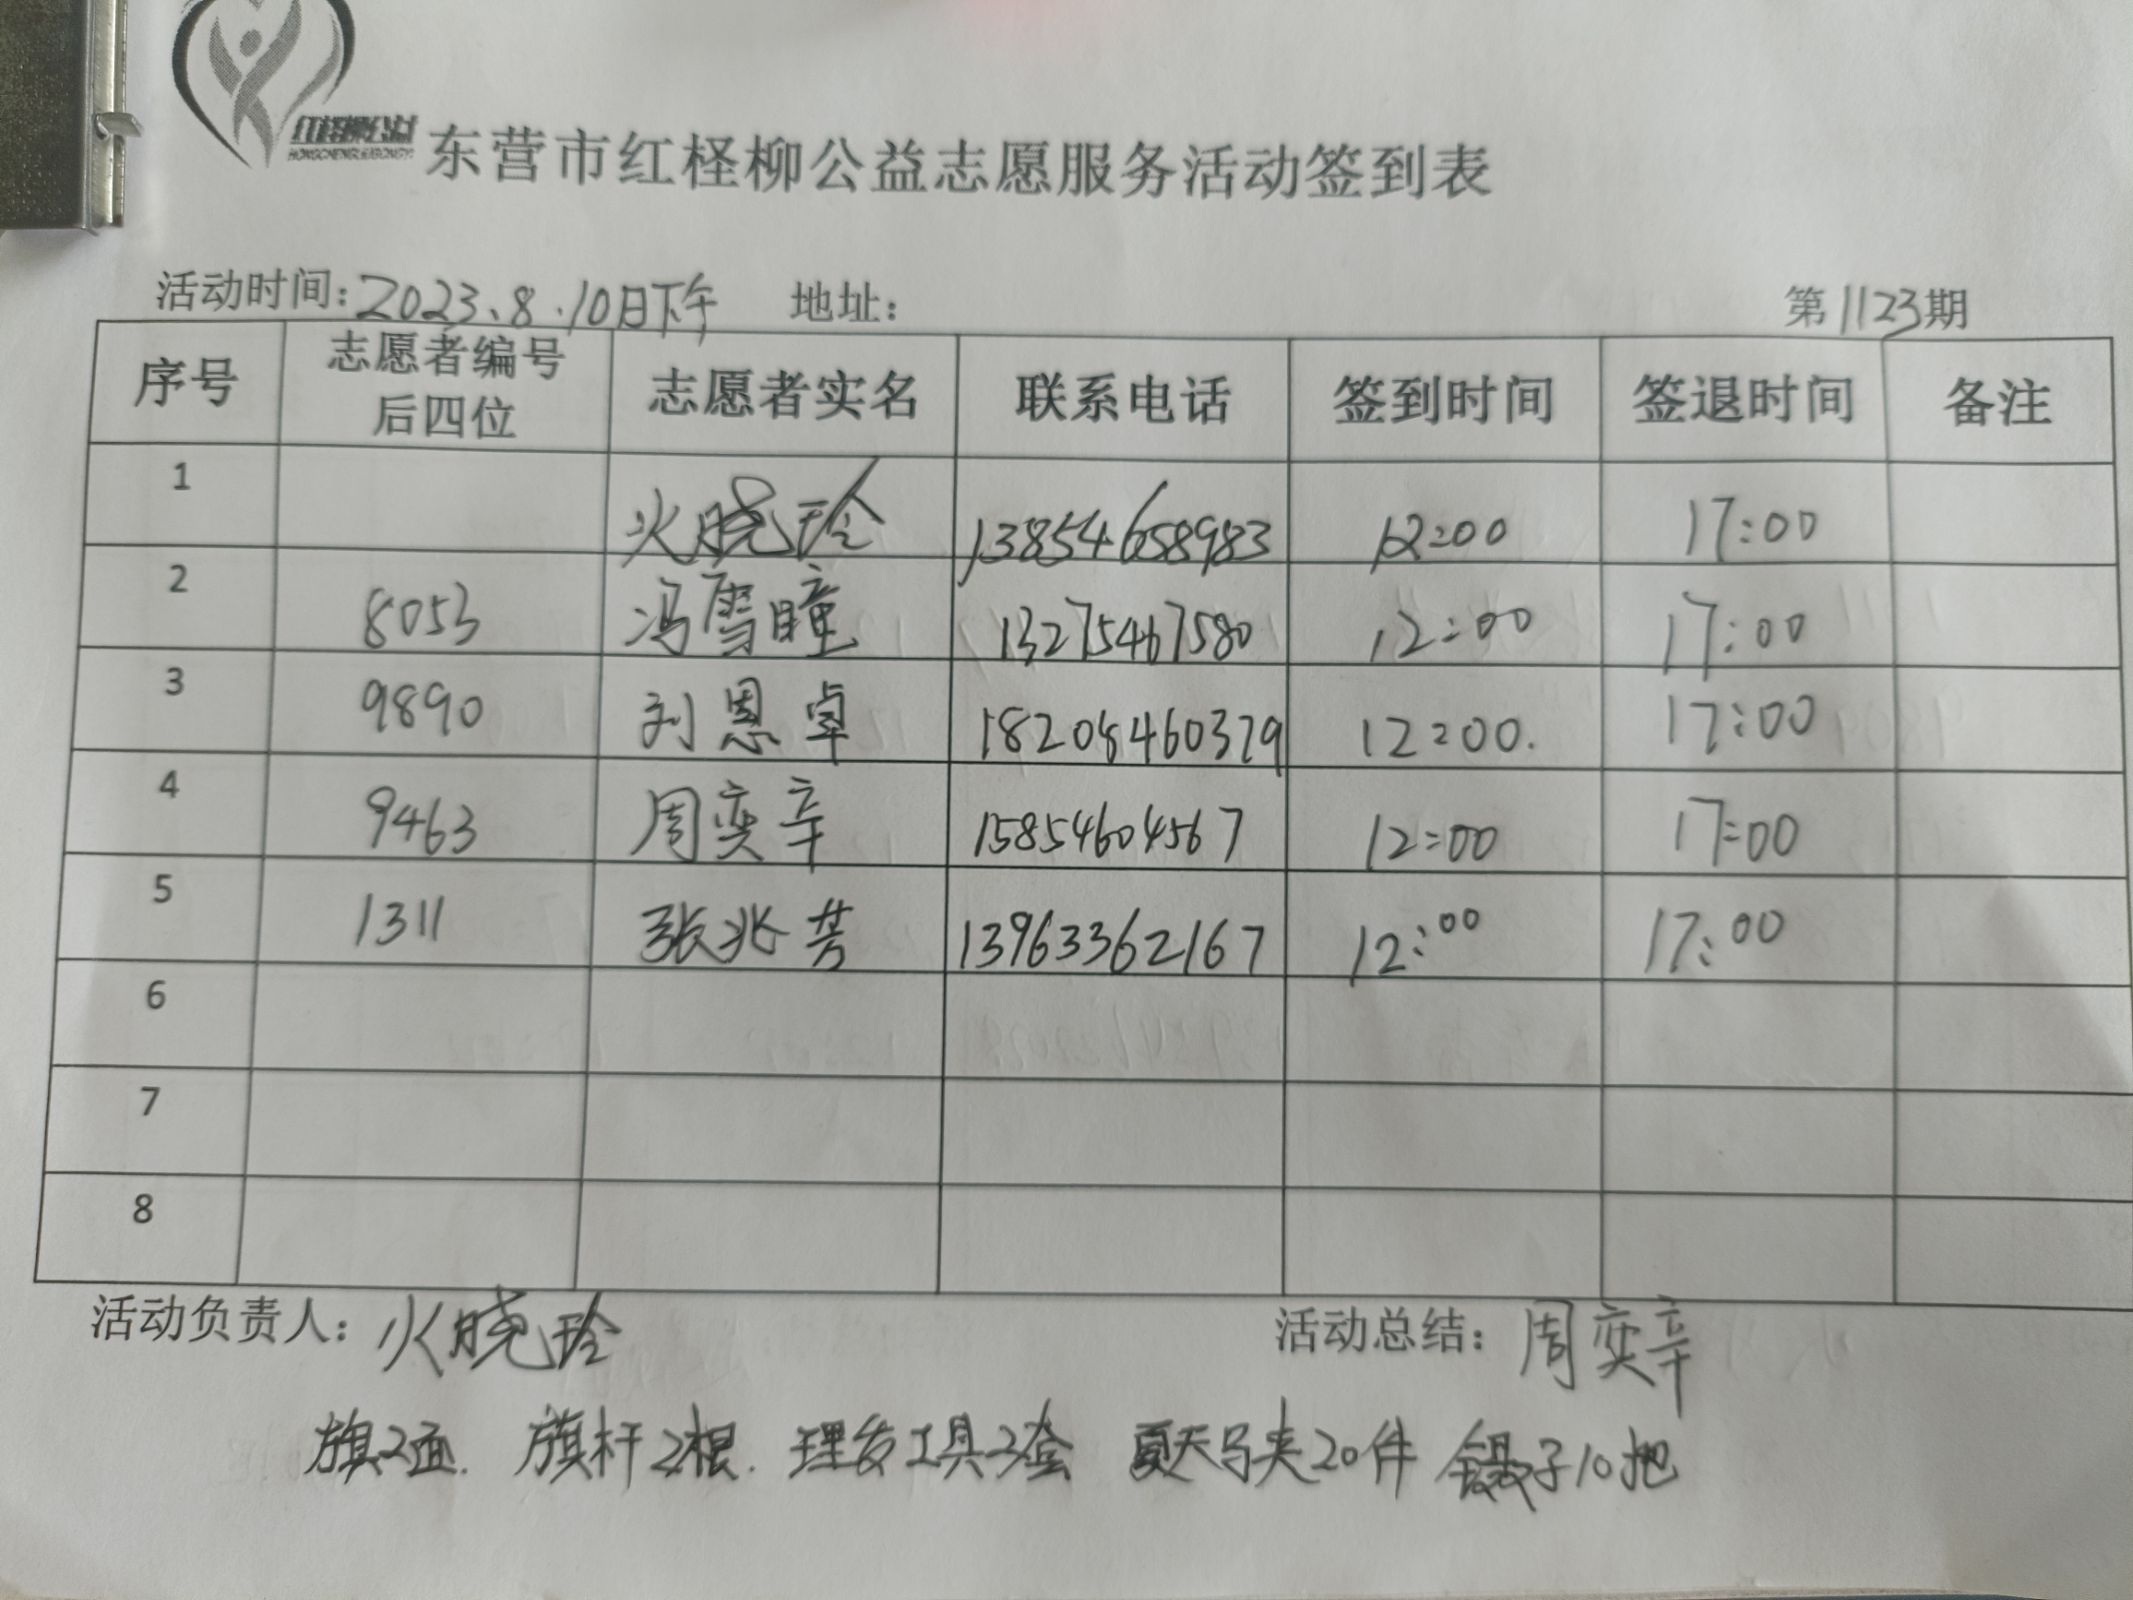 红柽柳公益
东营市红柽柳公益志愿服务活动签到表
活动时间:2023.8.10日下午 地址: 第1123期
序号 志愿者编号后四位 志愿者实名 联系电话 签到时间 签退时间 备注
1 火晓玲 13854658983 12:00 17:00
2 8053 冯雪瞳 13275467580 12:00 17:00
3 9890 刘恩卓 18205460379 12:00. 17:00
4 9463 周奕辛 15854604567 12:00 17:00
5 1311 张兆芳 13963362167 12:00 17:00
6
7
8
活动负责人:火晓玲 活动总结:周奕辛
旗2面. 旗杆2根. 理发工具3套 夏天马夹20件 镊子10把